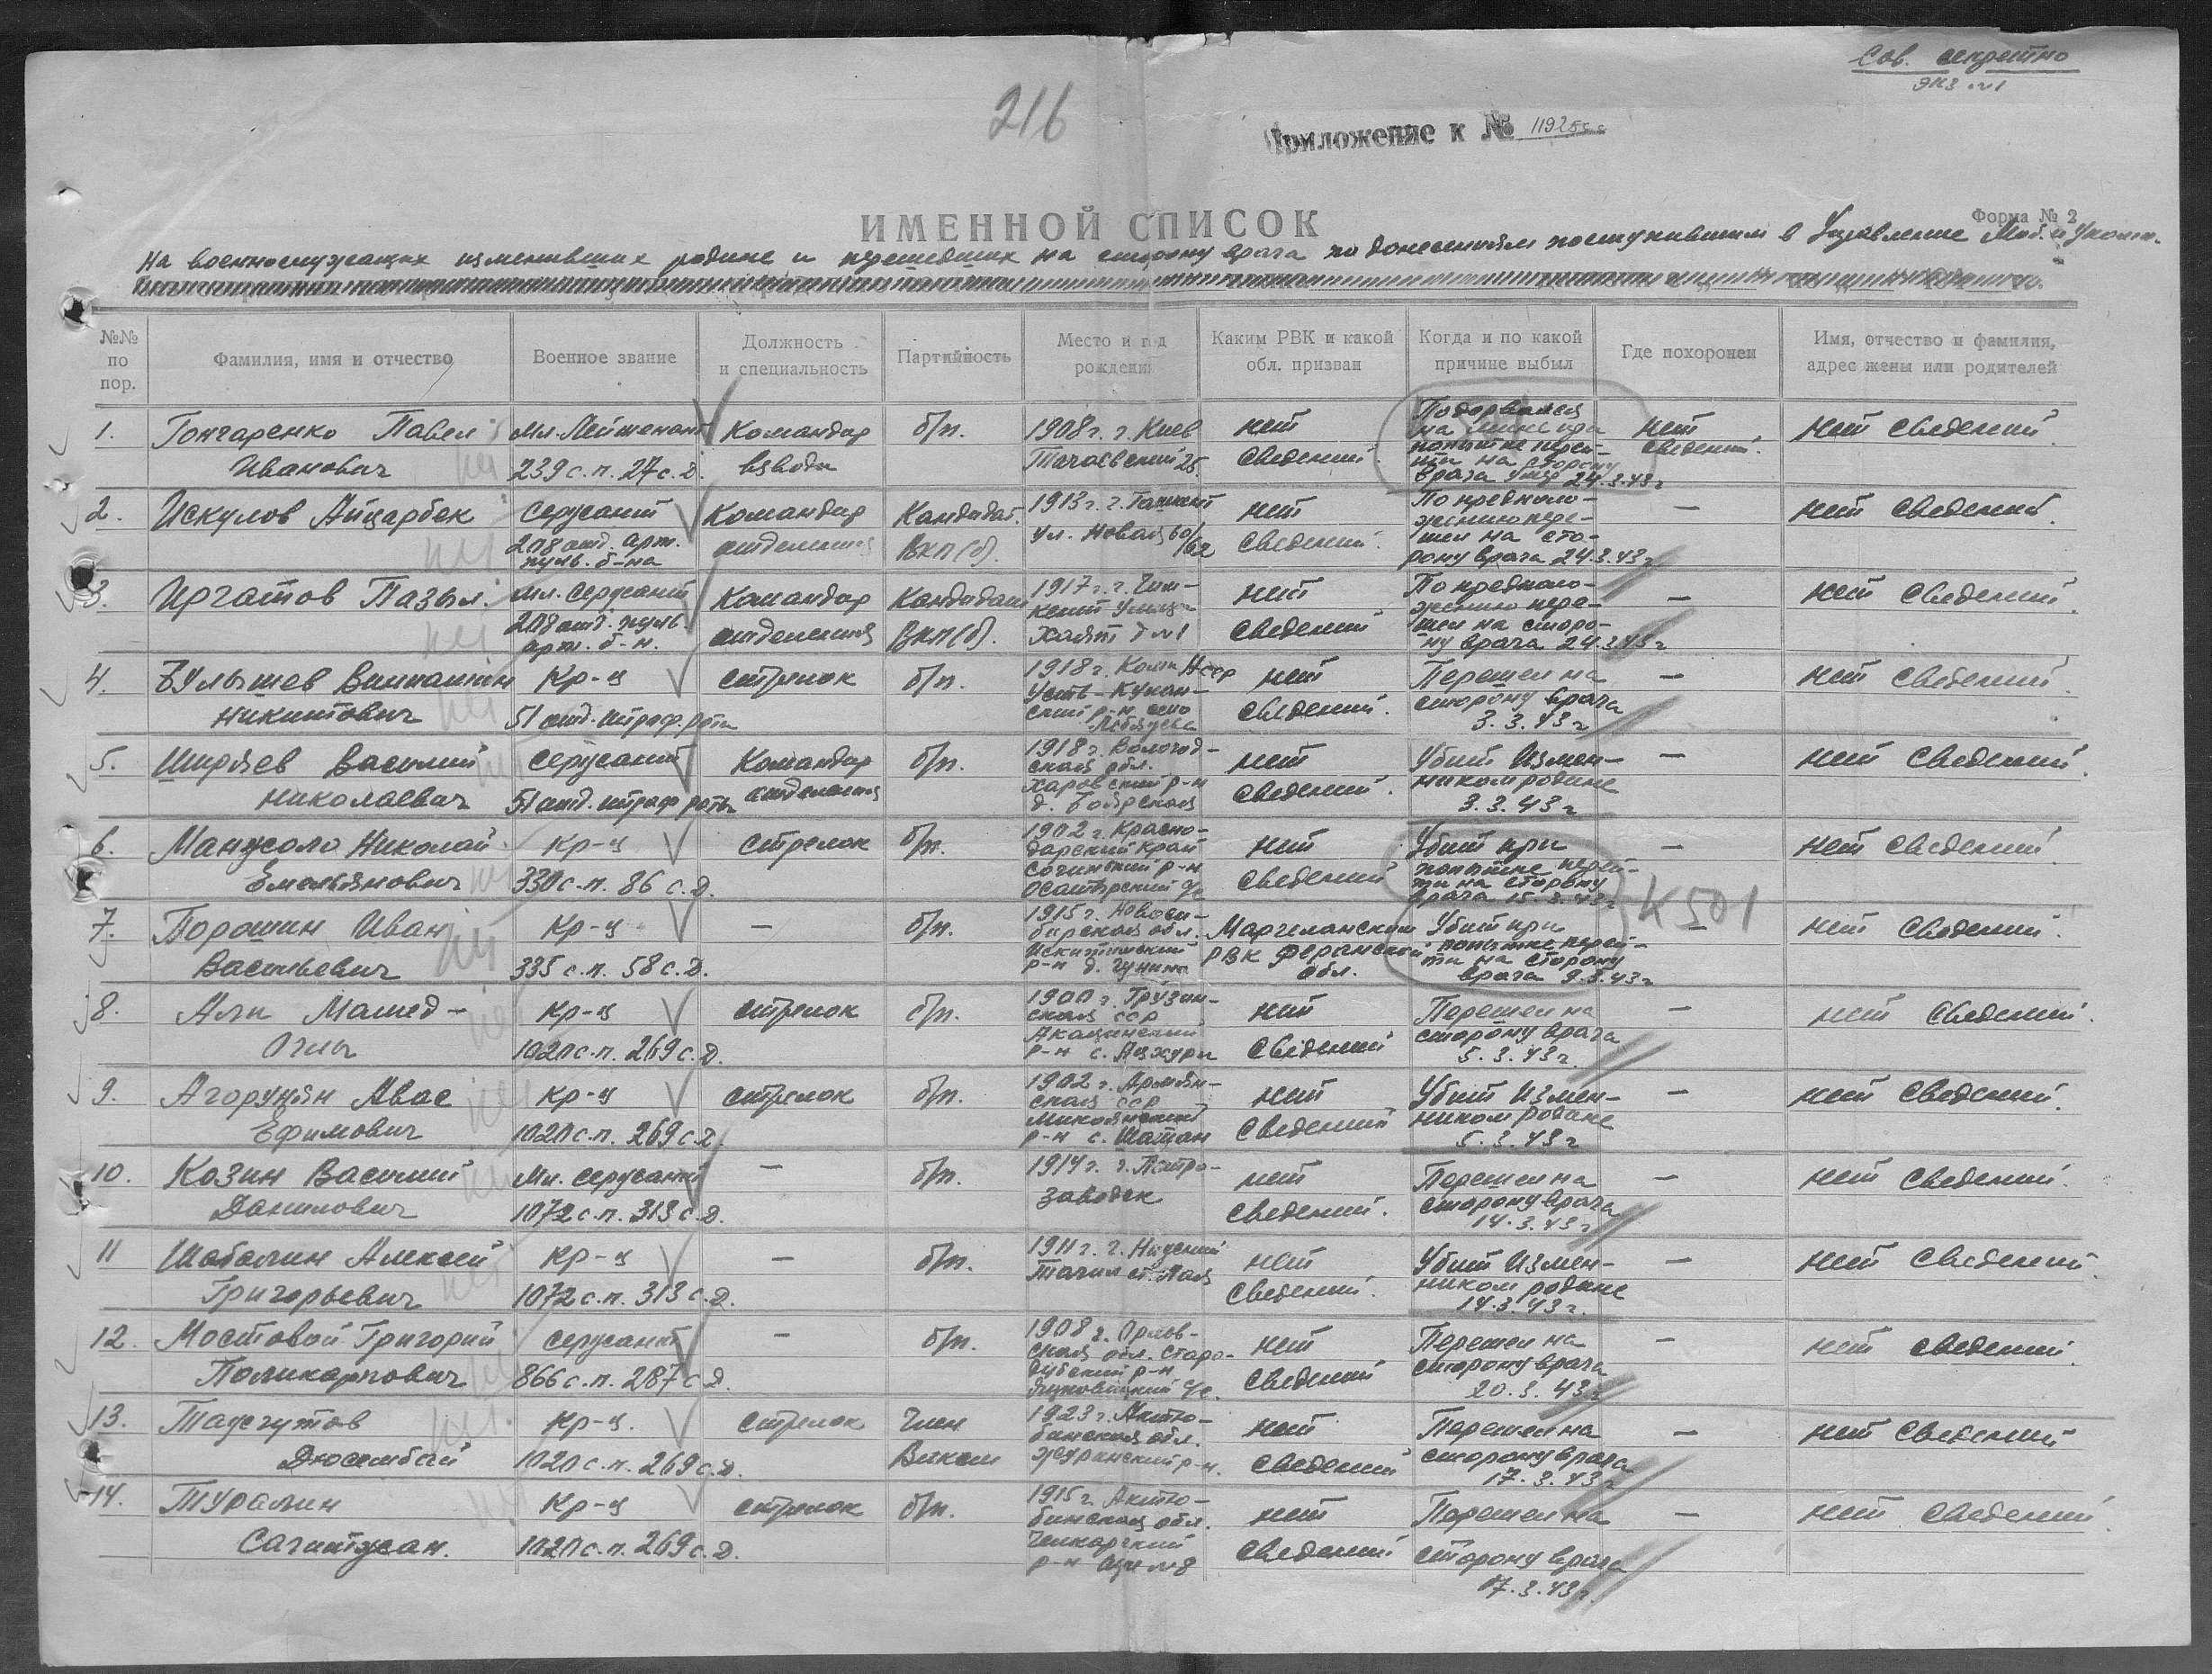 Сов. секретно
экз №1
216
Приложение к № 1192сс
ИМЕННОЙ СПИСОК
Форма № 2
На военнослужащих изменивших родине и перешедших на сторону врага по донесениям поступившим в Управление Моб. и Укомп.
№№ по пор.
Фамилия, имя и отчество
Военное звание
Должность и специальность
Партийность
Место и год рождения
Каким РВК и какой обл. призван
Когда и по какой причине выбыл
Где похоронен
Имя, отчество и фамилия, адрес жены или родителей
1. Гончаренко Павел Иванович
Мл. Лейтенант 239 с.п. 27 с.д.
Командир взвода
б/п.
1908 г. г. Киев 25
нет сведений
Подорвался на мине при попытке перейти на сторону врага 24.3.43 г
нет сведений.
нет сведений.
2. Искулов Айдарбек
Сержант 208 отд. арт. пульб. б-на
Командир отделения
Кандидат. ВКП(б).
1913 г. г. Ташкент ул. Новая 60/62
нет сведений.
По предположению перешел на сторону врага 24.3.43 г
—
нет сведений.
3. Иргатов Пазыл.
Мл. Сержант 208 отд. пуль. арт. б-н.
Командир отделения
Кандидат ВКП(б).
1917 г. г. Чимкент Улица д №1
нет сведений
По предположению перешел на сторону врага 24.3.43 г
—
нет сведений.
4. Булышев Никитович
Кр-ц 51 отд. штраф. роты
стрелок
б/п.
1918 г. Коми АССР р-н. село
нет сведений.
Перешел на сторону врага 3.3.43 г
—
нет сведений.
5. Ширяев Василий Николаевич
Сержант 51 отд. штраф роты
Командир отделения
б/п.
1918 г. Вологодская обл. Харовский р-н д. Боярская
нет сведений.
Убит Изменником родине 3.3.43 г
—
нет сведений.
6. Николай Емельянович
Кр-ц 330 с.п. 86 с.д.
стрелок
б/п.
1902 г. Краснодарский край Сочинский р-н с/с
нет сведений
Убит при попытке перейти на сторону врага 15.3.43 г
—
нет сведений.
К 501
7. Порошин Иван Васильевич
Кр-ц 335 с.п. 58 с.д.
—
б/п.
1915 г. Новосибирская обл. Искитимский р-н д.
Маргеланском РВК Ферганской обл.
Убит при попытке перейти на сторону врага 9.3.43 г
—
нет сведений.
8. Али Мамед-Оглы
Кр-ц 1020 с.п. 269 с.д.
стрелок
б/п.
1900 г. Грузинская ССР р-н с. Ацхури
нет сведений
Перешел на сторону врага 5.3.43 г
—
нет сведений.
9. Авас Ефимович
Кр-ц 1020 с.п. 269 с.д.
стрелок
б/п.
1902 г. Армянская ССР Микоянский р-н с. Шатан
нет сведений
Убит Изменником родине 5.3.43 г
—
нет сведений.
10. Козин Василий Данилович
Мл. сержант 1072 с.п. 313 с.д.
—
б/п.
1914 г. г. Петрозаводск
нет сведений.
Перешел на сторону врага 14.3.43 г
—
нет сведений.
11 Шабалин Алексей Григорьевич
Кр-ц 1072 с.п. 313 с.д.
—
б/п.
1911 г. г. Нижний Тагил
нет сведений.
Убит Изменником родине 14.3.43 г.
—
нет сведений.
12. Мостовой Григорий Поликарпович
Сержант 866 с.п. 287 с.д.
—
б/п.
1908 г. Орловская обл. Стародубский р-н с/с.
нет сведений
Перешел на сторону врага 20.3.43 г
—
нет сведений.
13. Дюсембай
Кр-ц. 1020 с.п. 269 с.д.
стрелок
Член
1923 г. Актюбинская обл. р-н.
нет сведений
Перешел на сторону врага 17.3.43 г
—
нет сведений
14. Туралин
Кр-ц 1020 с.п. 269 с.д.
стрелок
б/п.
1915 г. Актюбинская обл. Челкарский р-н №8
нет сведений
Перешел на сторону врага 17.3.43 г.
—
нет сведений.